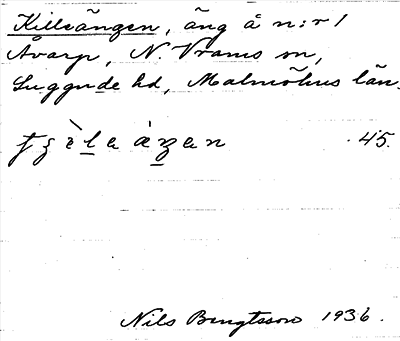 Killeängen, äng å n:r 1
Åvarp, N. Vrams sn,
Luggude hd, Malmöhus län.
45.
Nils Bengtsson 1936.